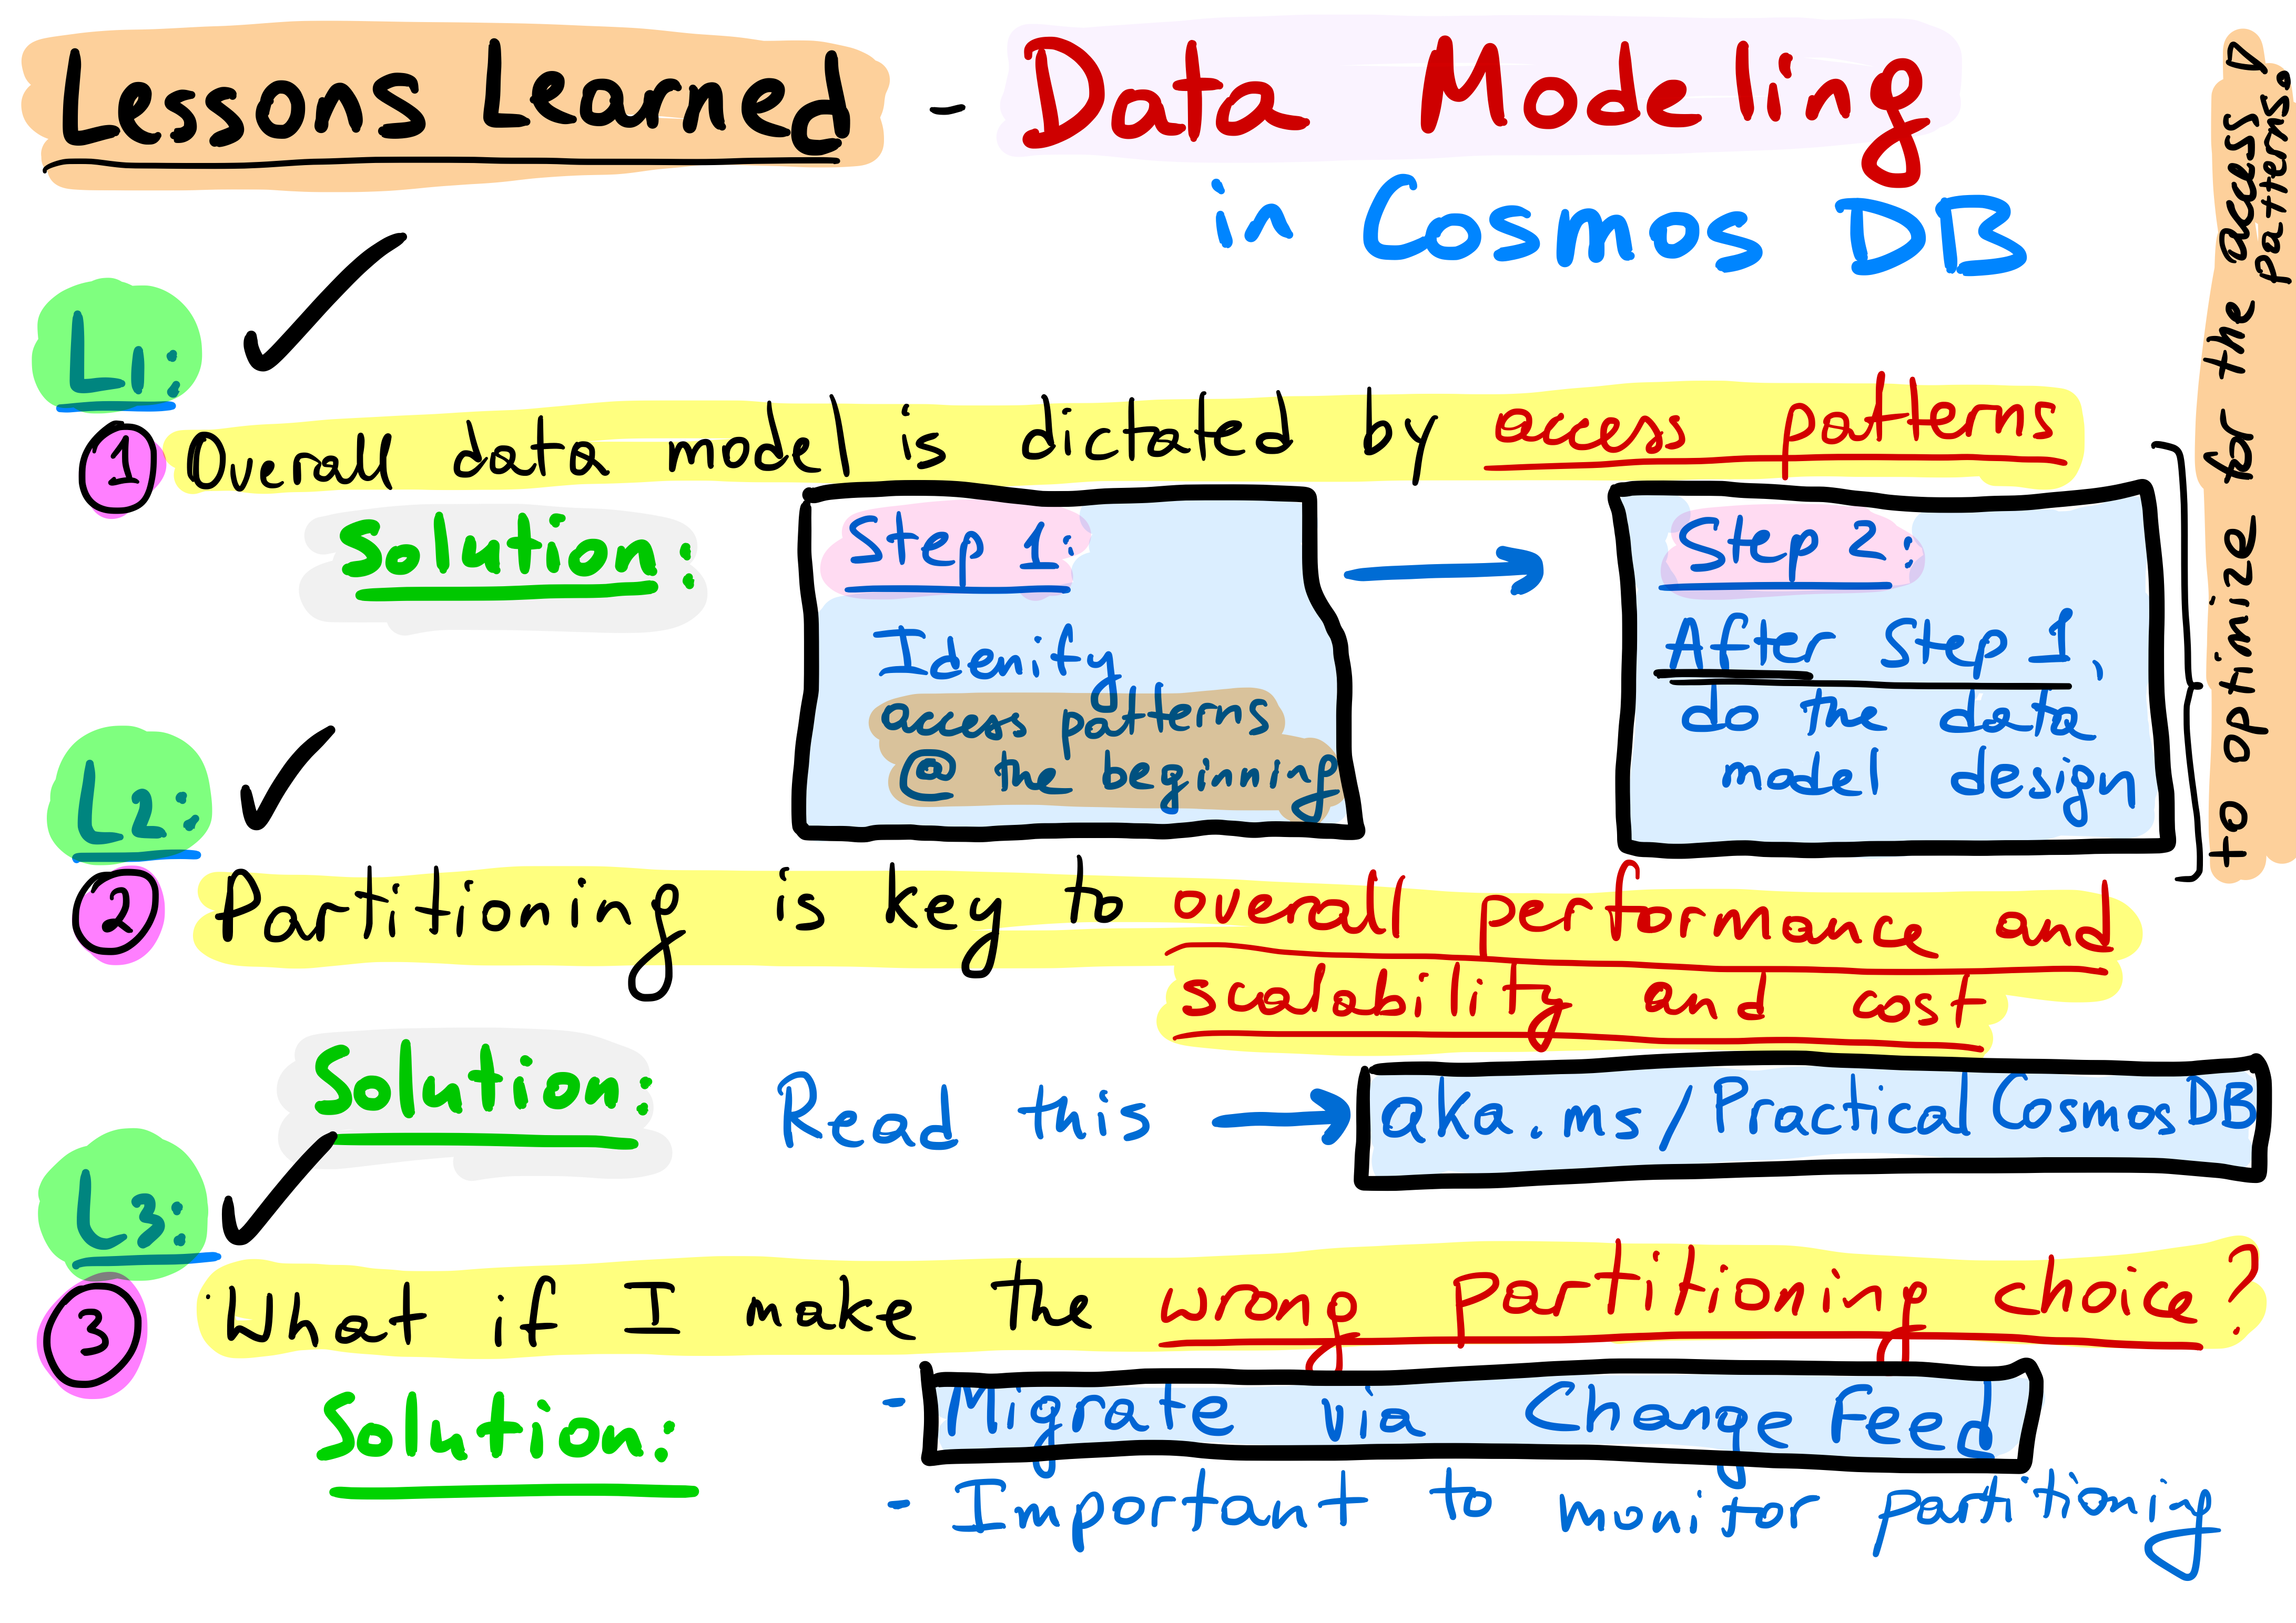 Lessons Learned - Data Modeling
in Cosmos DB
L1:
1 Overall data model is dictated by access patterns
Solution:
Step 1:
Idenify
access patterns
@ the beginning
Step 2:
After Step 1,
do the data
model design
to optimize for the access
patterns.
L2:
2 Partitioning is key to overall performance and
scalability and cost
Solution: Read this → aka.ms/PracticalCosmosDB
L3:
3 What if I make the wrong partitioning choice?
Solution: - Migrate via Change Feed
- Important to monitor partitioning